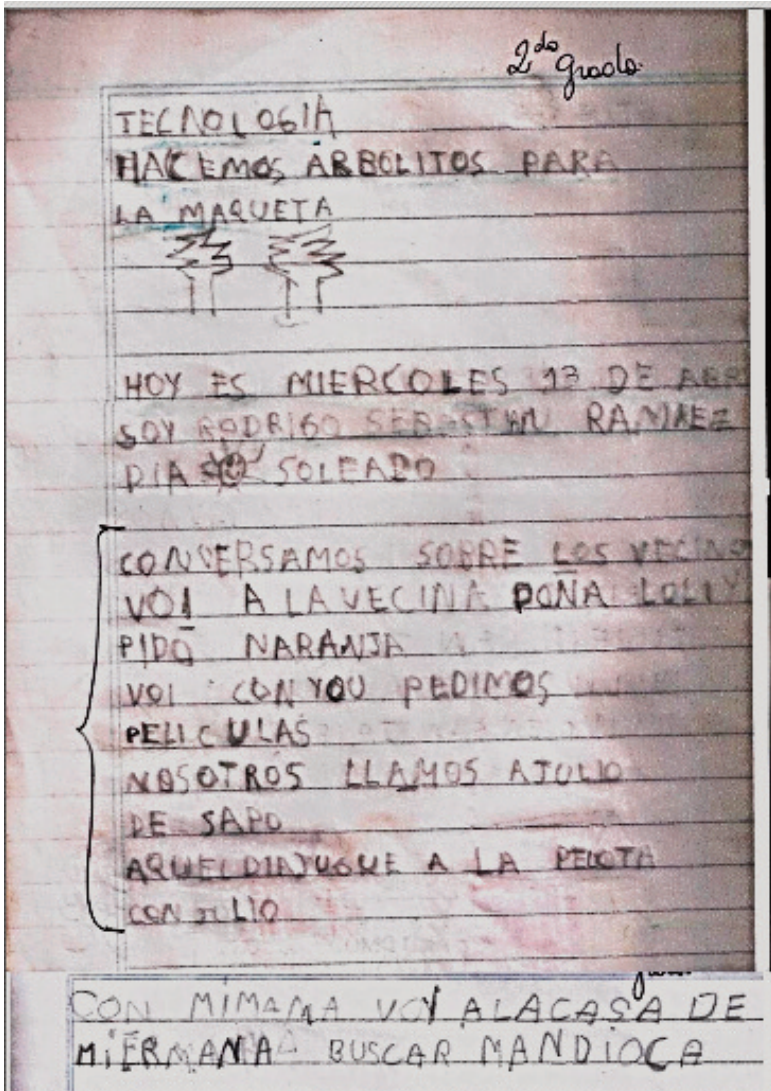 2do grado
TECNOLOGIA
HACEMOS ARBOLITOS PARA
LA MAQUETA
HOY ES MIERCOLES 13 DE ABR
SOY RODRIGO SEBASTIAN RAMIREZ
DIA SOLEADO
CONVERSAMOS SOBRE LOS VECINOS
VOI A LA VECINA DOÑA LOLI Y
PIDO NARANJA
VOI CON YOU PEDIMOS
PELICULAS
NOSOTROS LLAMOS AJULIO
DE SAPO
AQUELDIAJUGUE A LA PELOTA
CON JULIO
CON MIMAMA VOY ALACASA DE
MiERMANA BUSCAR MANDIOCA